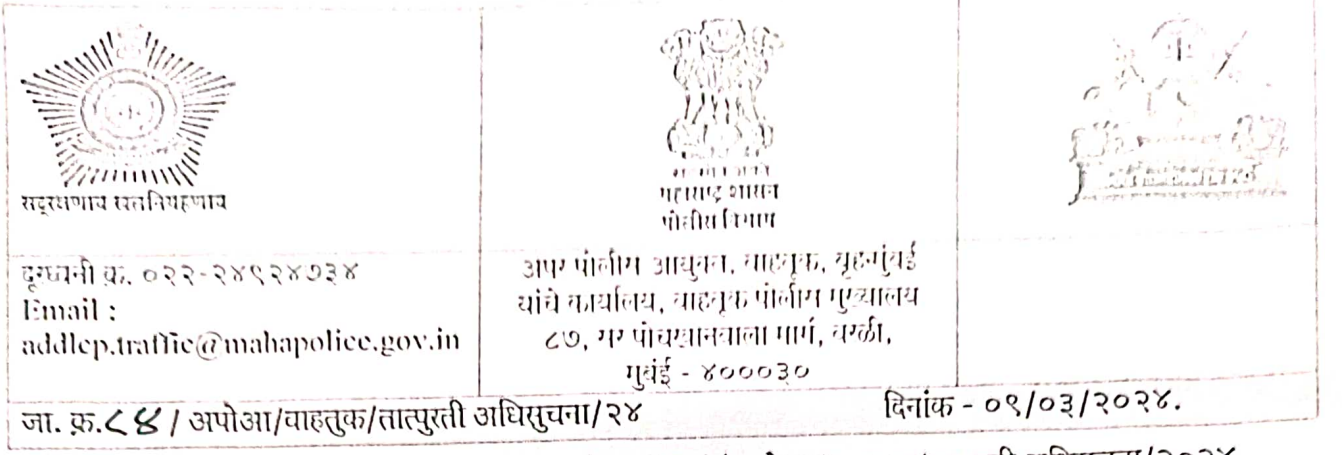 सद्रक्षणाय खलनिग्रहणाय
महाराष्ट्र शासन
पोलीस विभाग
दूरध्वनी क्र. ०२२-२४९२४७३४
Email :
addlcp.traffic@mahapolice.gov.in
अपर पोलीस आयुक्त, वाहतूक, बृहन्मुंबई
यांचे कार्यालय, वाहतूक पोलीस मुख्यालय
८७, सर पोचखानवाला मार्ग, वरळी,
मुबंई - ४०००३०
जा. क्र.८४ / अपोआ/वाहतुक/तात्पुरती अधिसुचना/२४
दिनांक - ०९/०३/२०२४.